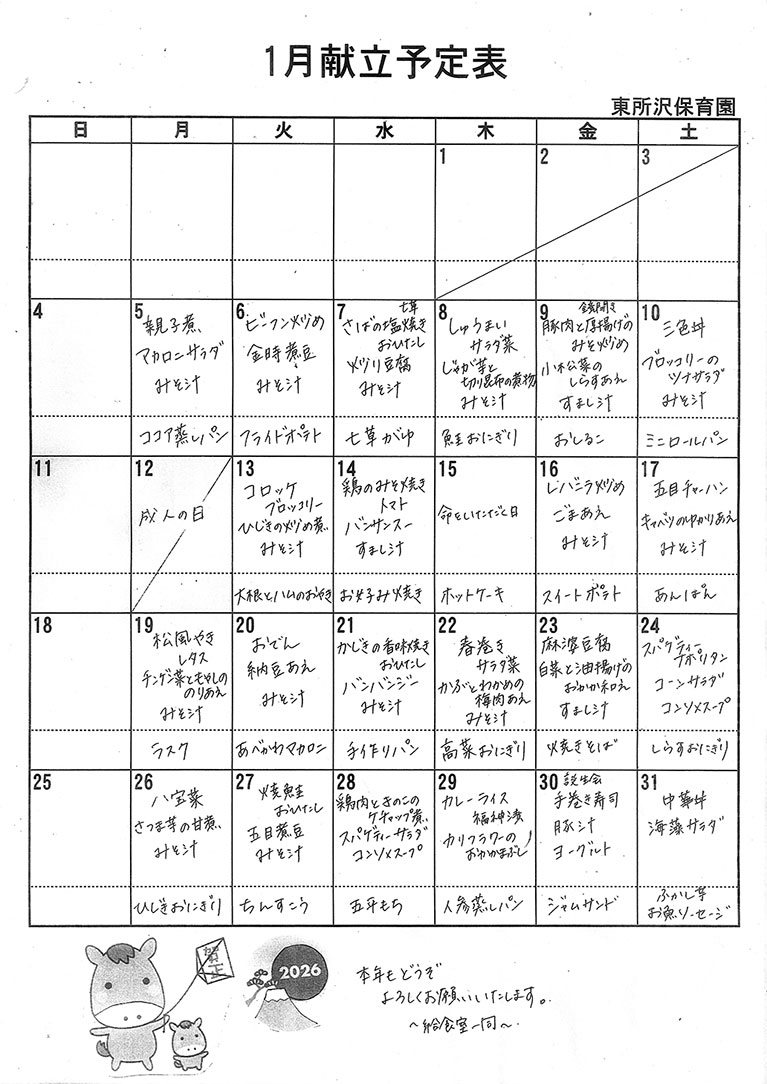 1月献立予定表
東所沢保育園
日 月 火 水 木 金 土
1 2 3
4
5
親子煮
マカロニサラダ
みそ汁
ココア蒸しパン
6
ビーフン炒め
金時煮豆
みそ汁
フライドポテト
7
七草
さばの塩焼き
おひたし
炒り豆腐
みそ汁
七草がゆ
8
しゅうまい
サラダ菜
じゃが芋と
切り昆布の煮物
みそ汁
鮭おにぎり
9
鏡開き
豚肉と厚揚げの
みそ炒め
小松菜の
しらすあえ
すまし汁
おしるこ
10
三色丼
ブロッコリーの
ツナサラダ
みそ汁
ミニロールパン
11
12
成人の日
13
コロッケ
ブロッコリー
ひじきの炒め煮
みそ汁
大根とハムのおやき
14
鶏のみそ焼き
トマト
バンサンスー
すまし汁
お好み焼き
15
命をいただく日
ホットケーキ
16
レバニラ炒め
ごまあえ
みそ汁
スイートポテト
17
五目チャーハン
キャベツのゆかりあえ
みそ汁
あんぱん
18
19
松風やき
レタス
チンゲン菜ともやしの
のりあえ
みそ汁
ラスク
20
おでん
納豆あえ
みそ汁
あべかわマカロニ
21
かじきの香味焼き
おひたし
バンバンジー
みそ汁
手作りパン
22
春巻き
サラダ菜
かぶとわかめの
梅肉あえ
みそ汁
高菜おにぎり
23
麻婆豆腐
白菜と油揚げの
おかか和え
すまし汁
焼きそば
24
スパゲティー
ナポリタン
コーンサラダ
コンソメスープ
しらすおにぎり
25
26
八宝菜
さつま芋の甘煮
みそ汁
ひじきおにぎり
27
焼鮭
おひたし
五目煮豆
みそ汁
ちんすこう
28
鶏肉ときのこの
ケチャップ煮
スパゲティーサラダ
コンソメスープ
五平もち
29
カレーライス
福神漬
カリフラワーの
おかかまぶし
人参蒸しパン
30
誕生会
手巻き寿司
豚汁
ヨーグルト
ジャムサンド
31
中華丼
海藻サラダ
ふかし芋
お魚ソーセージ
賀正
2026
本年もどうぞ
よろしくお願いいたします。
〜給食室一同〜